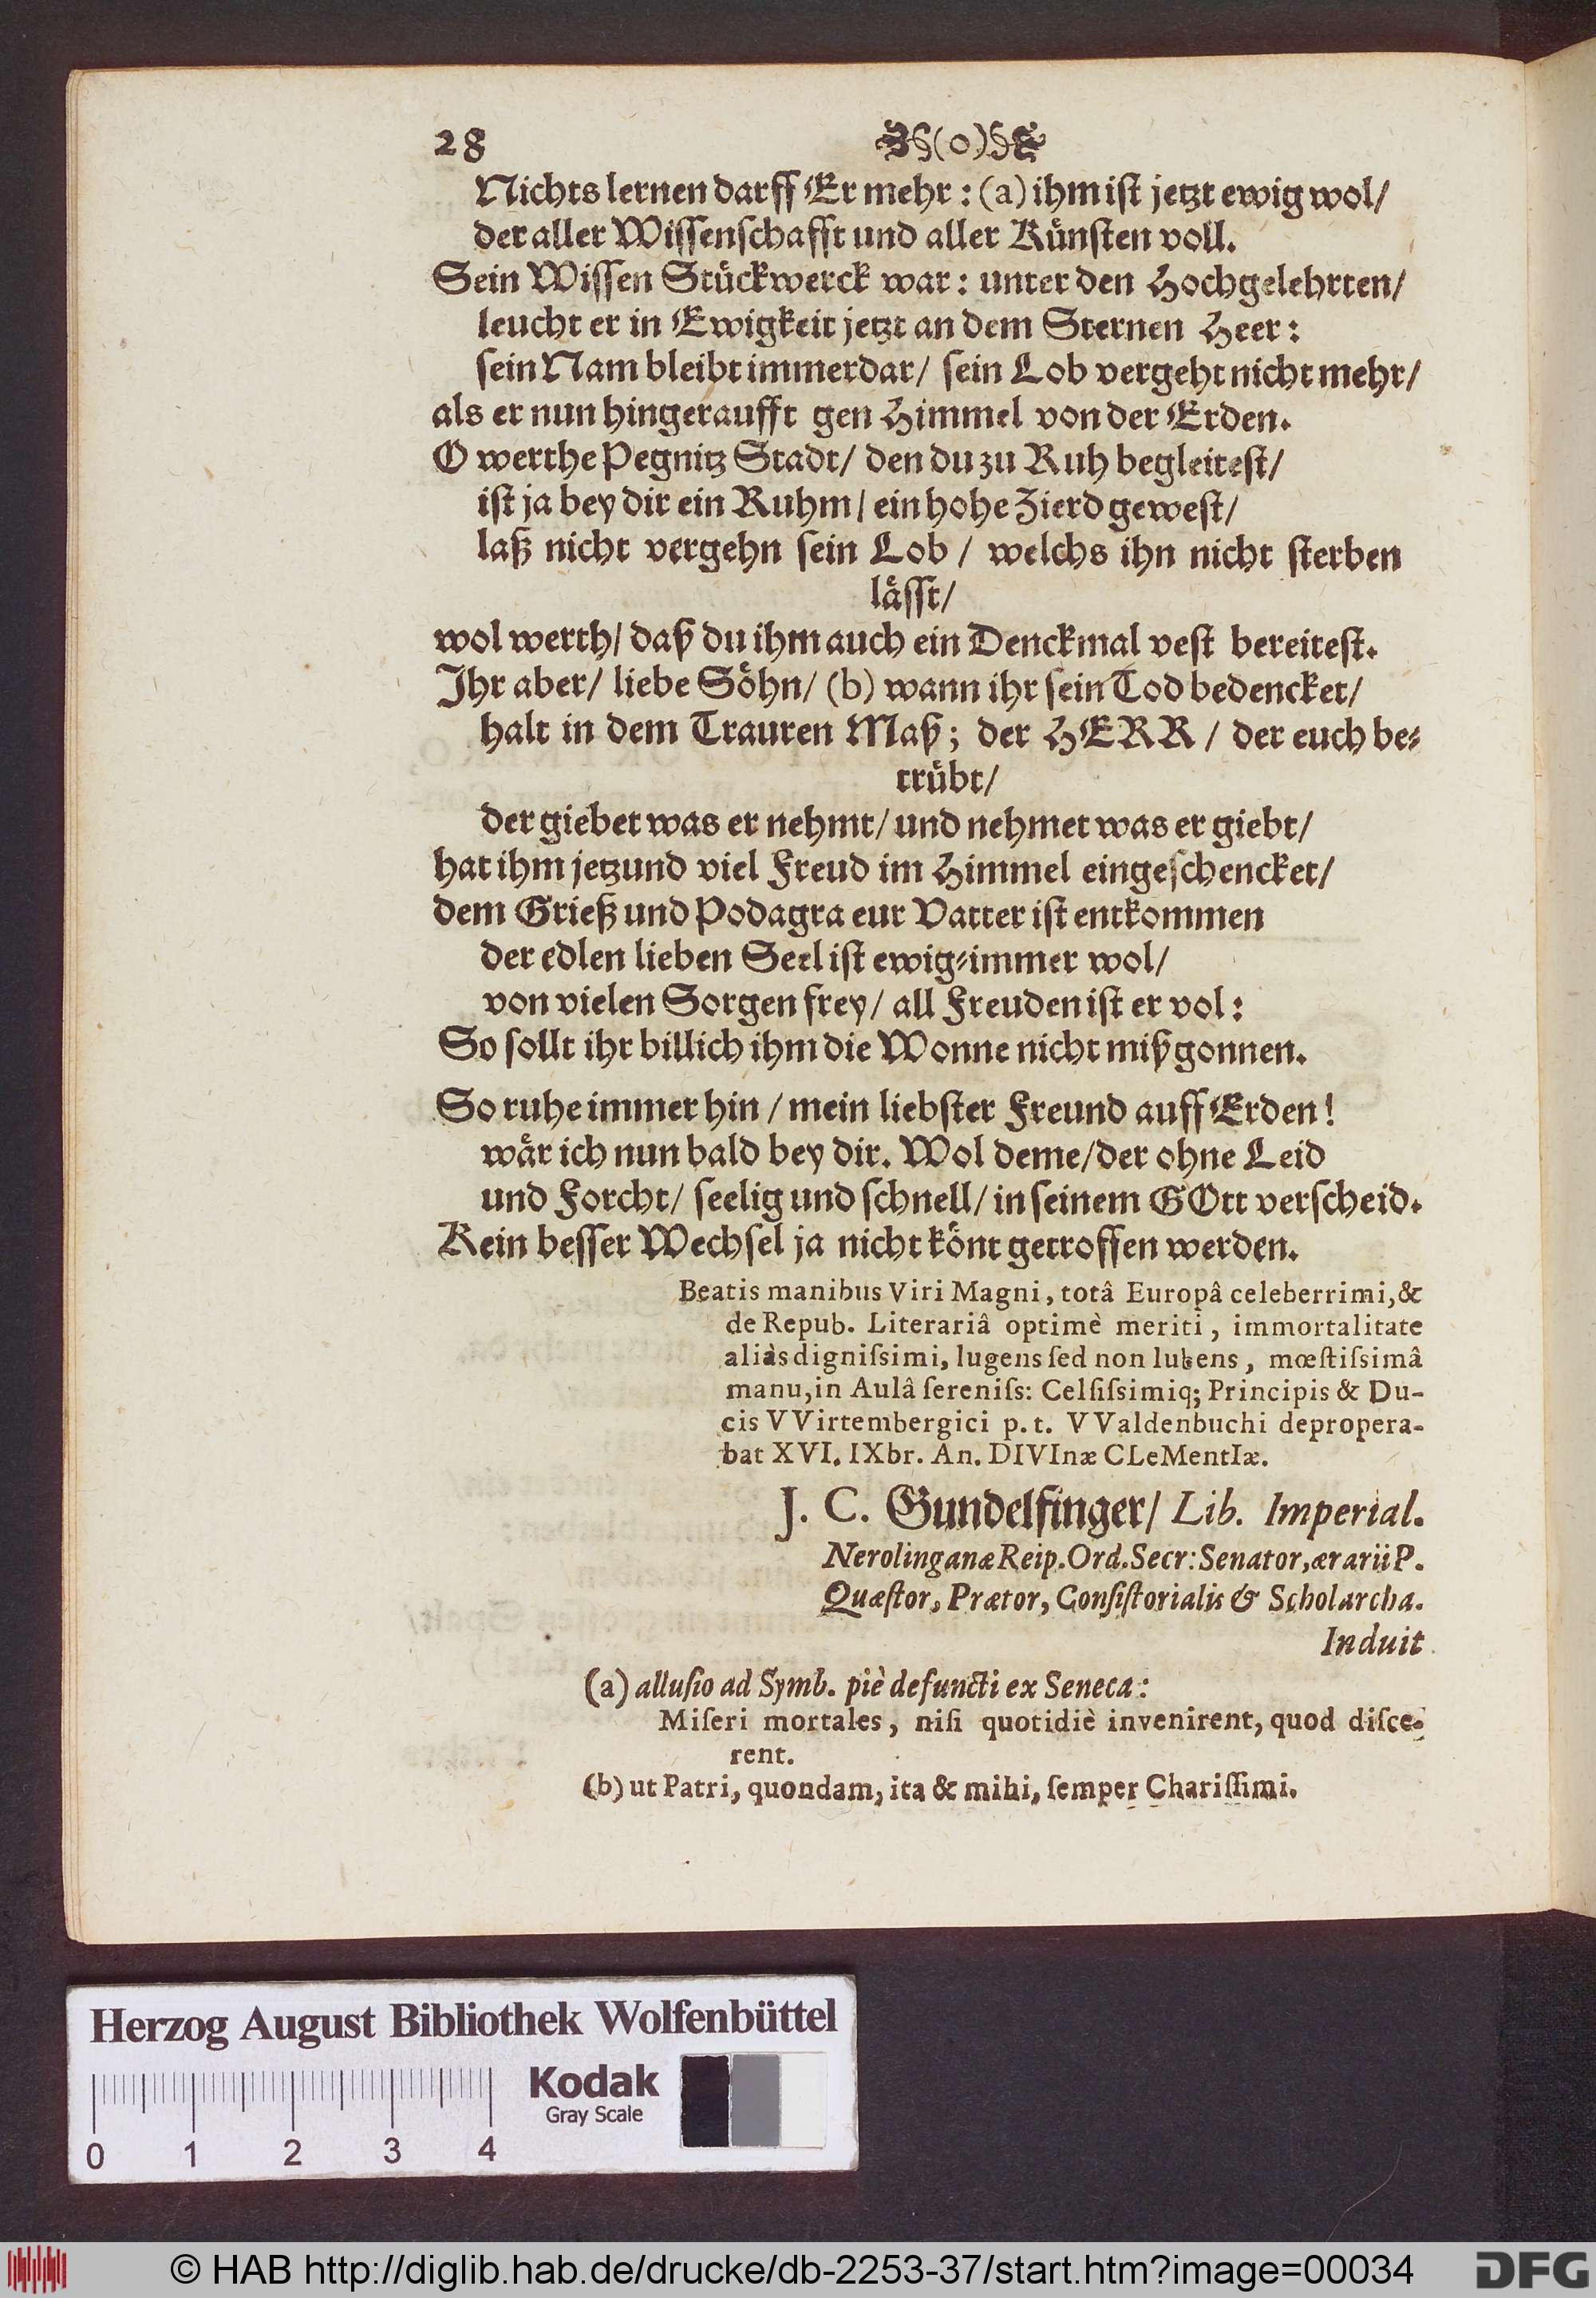 28 ❧§(o)§❧
Nichts lernen darff Er mehr: (a) ihm ist jetzt ewig wol/
der aller Wissenschafft und aller Künsten voll.
Sein Wissen Stückwerck war: unter den Hochgelehrten/
leucht er in Ewigkeit jetzt an dem Sternen Heer:
sein Nam bleibt immerdar/ sein Lob vergeht nicht mehr/
als er nun hingerafft gen Himmel von der Erden.
O werthe Pegnitz Stadt/ den du zu Ruh begleitest/
ist ja bey dir ein Ruhm/ ein hohe Zierd gewest/
laß nicht vergehn sein Lob/ welchs ihn nicht sterben
lässt/
wol werth/ daß du ihm auch ein Denckmal vest bereitest.
Ihr aber/ liebe Söhn/ (b) wann ihr sein Tod bedencket/
halt in dem Trauren Maß; der HERR/ der euch be-
trübt/
der giebet was er nehmt/ und nehmet was er giebt/
hat ihm jetzund viel Freud im Himmel eingeschencket/
dem Grieß und Podagra eur Vatter ist entkommen
der edlen lieben Seel ist ewig-immer wol/
von vielen Sorgen frey/ all Freuden ist er vol:
So sollt ihr billich ihm die Wonne nicht mißgonnen.
So ruhe immer hin/ mein liebster Freund auff Erden!
wär ich nun bald bey dir. Wol deme/ der ohne Leid
und Forcht/ seelig und schnell/ in seinem GOtt verscheid.
Kein besser Wechsel ja nicht könt getroffen werden.
Beatis manibus Viri Magni, totâ Europâ celeberrimi, &
de Repub. Literariâ optimè meriti, immortalitate
aliàs dignissimi, lugens sed non lubens, mœstissimâ
manu, in Aulâ sereniss: Celsissimiq; Principis & Du-
cis VVirtembergici p. t. VValdenbuchi depropera-
bat XVI. IXbr. An. DIVInæ CLeMentIæ.
J. C. Gundelfinger/ Lib. Imperial.
Nerolinganæ Reip. Ord. Secr: Senator, ærarii P.
Quæstor, Prætor, Consistorialis & Scholarcha.
Induit
(a) allusio ad Symb. piè defuncti ex Seneca:
Miseri mortales, nisi quotidiè invenirent, quod disce-
rent.
(b) ut Patri, quondam, ita & mihi, semper Charissimi.
Herzog August Bibliothek Wolfenbüttel
Kodak
Gray Scale
0 1 2 3 4
© HAB http://diglib.hab.de/drucke/db-2253-37/start.htm?image=00034
DFG